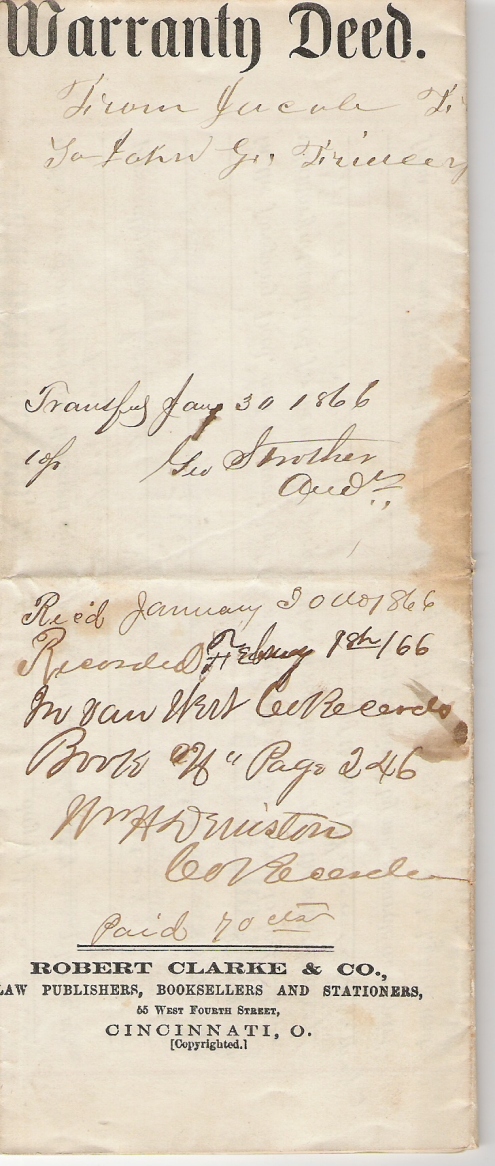 Warranty Deed.
From Jacob
To John G.
Transfd Jany 30 1866
Geo Strother
Aud
Rec'd January 30 1866
Recorded 18th/66
In Van Wert Co Records
Book Page 246
Wm H Deniston
Co Recorder
Paid 70 cts
ROBERT CLARKE & CO.,
LAW PUBLISHERS, BOOKSELLERS AND STATIONERS,
55 WEST FOURTH STREET,
CINCINNATI, O.
[Copyrighted.]